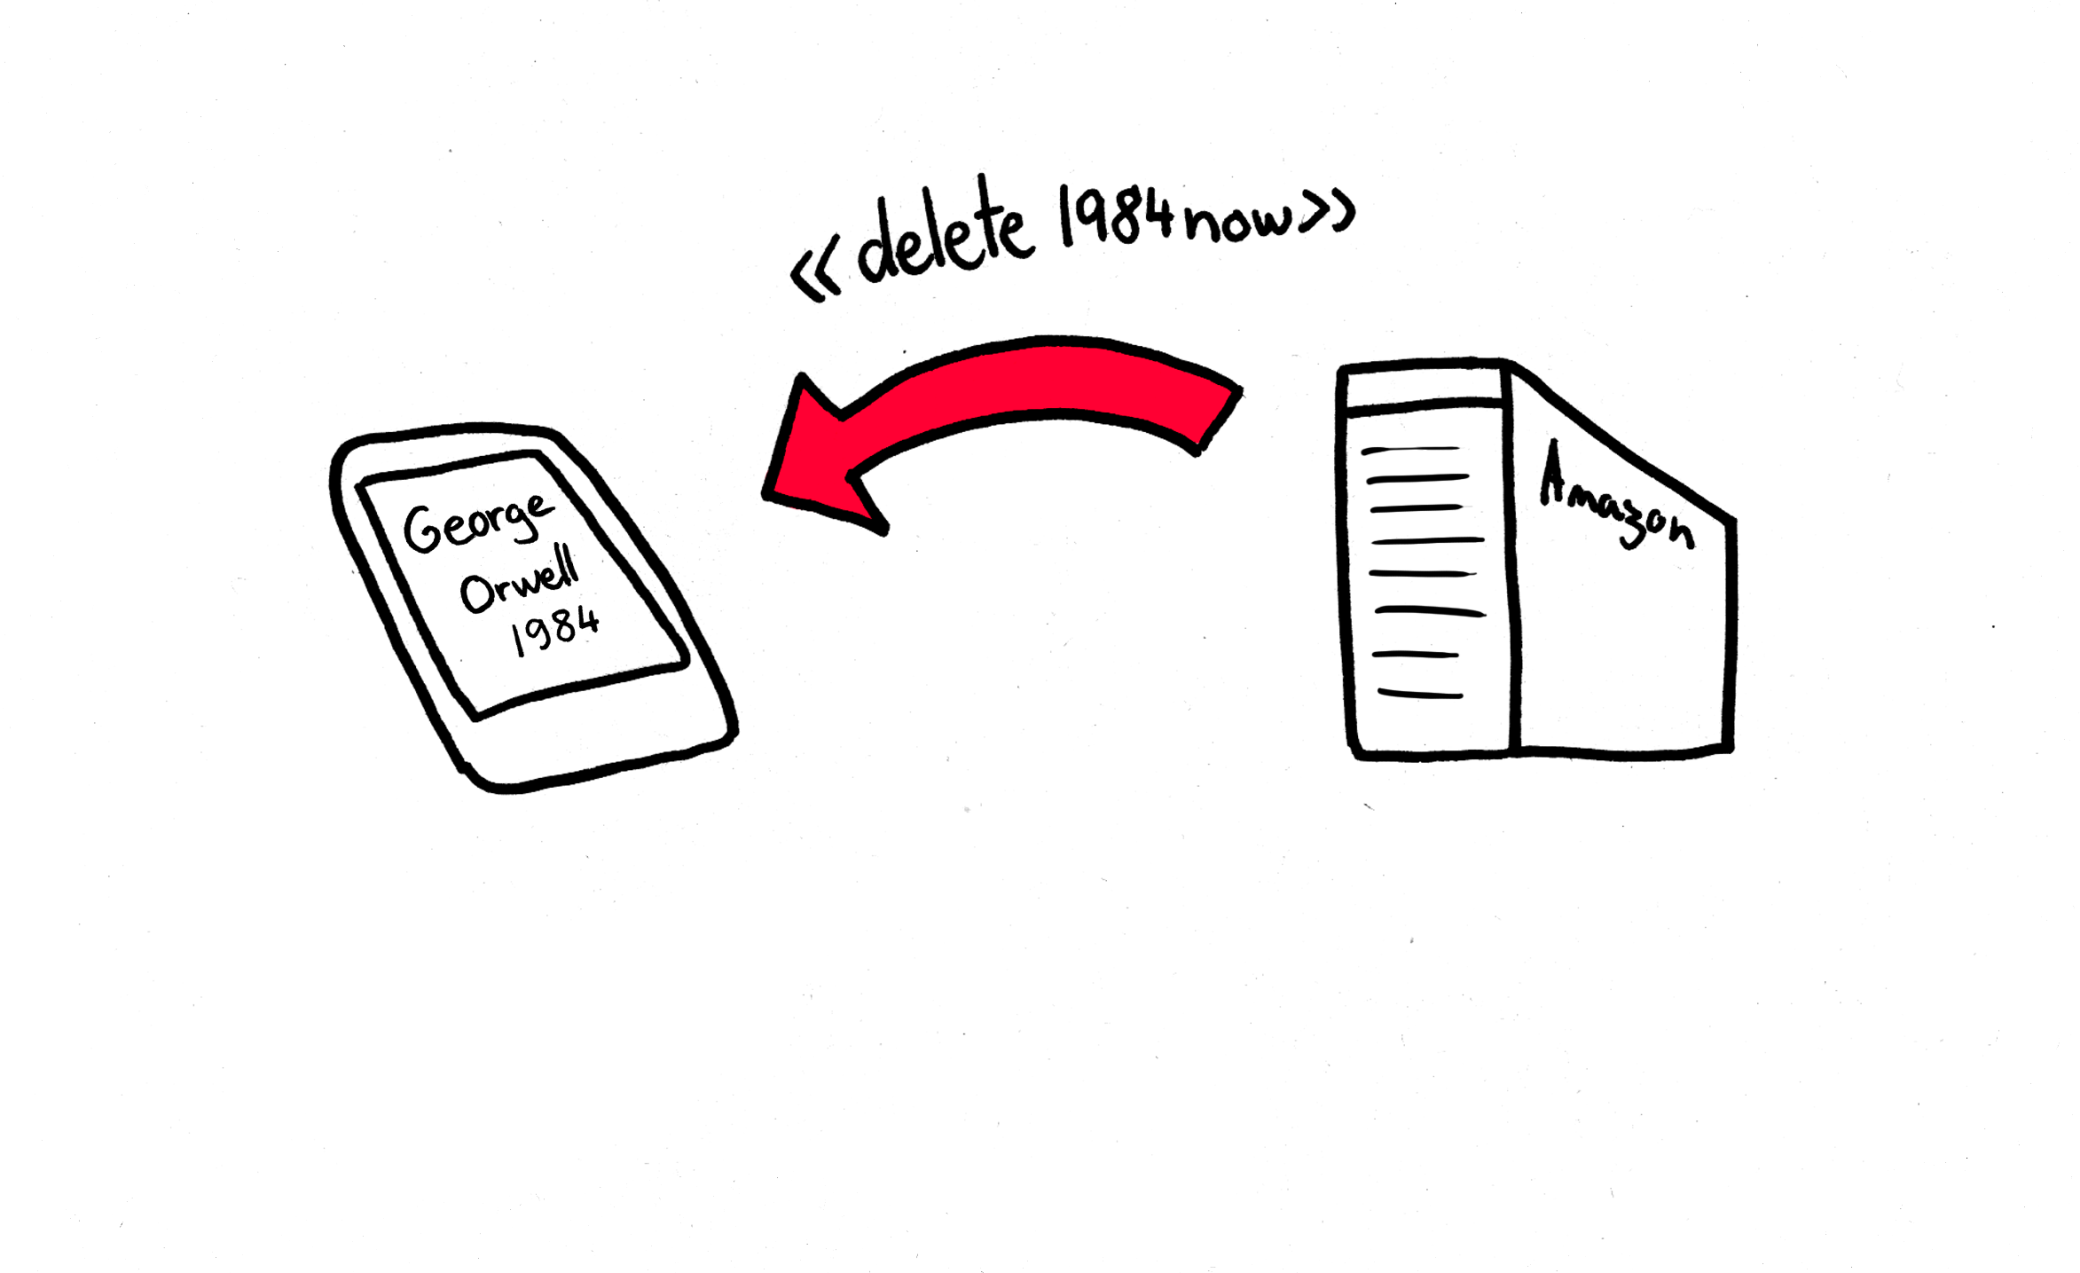 «delete 1984 now»
George
Orwell
1984
Amazon